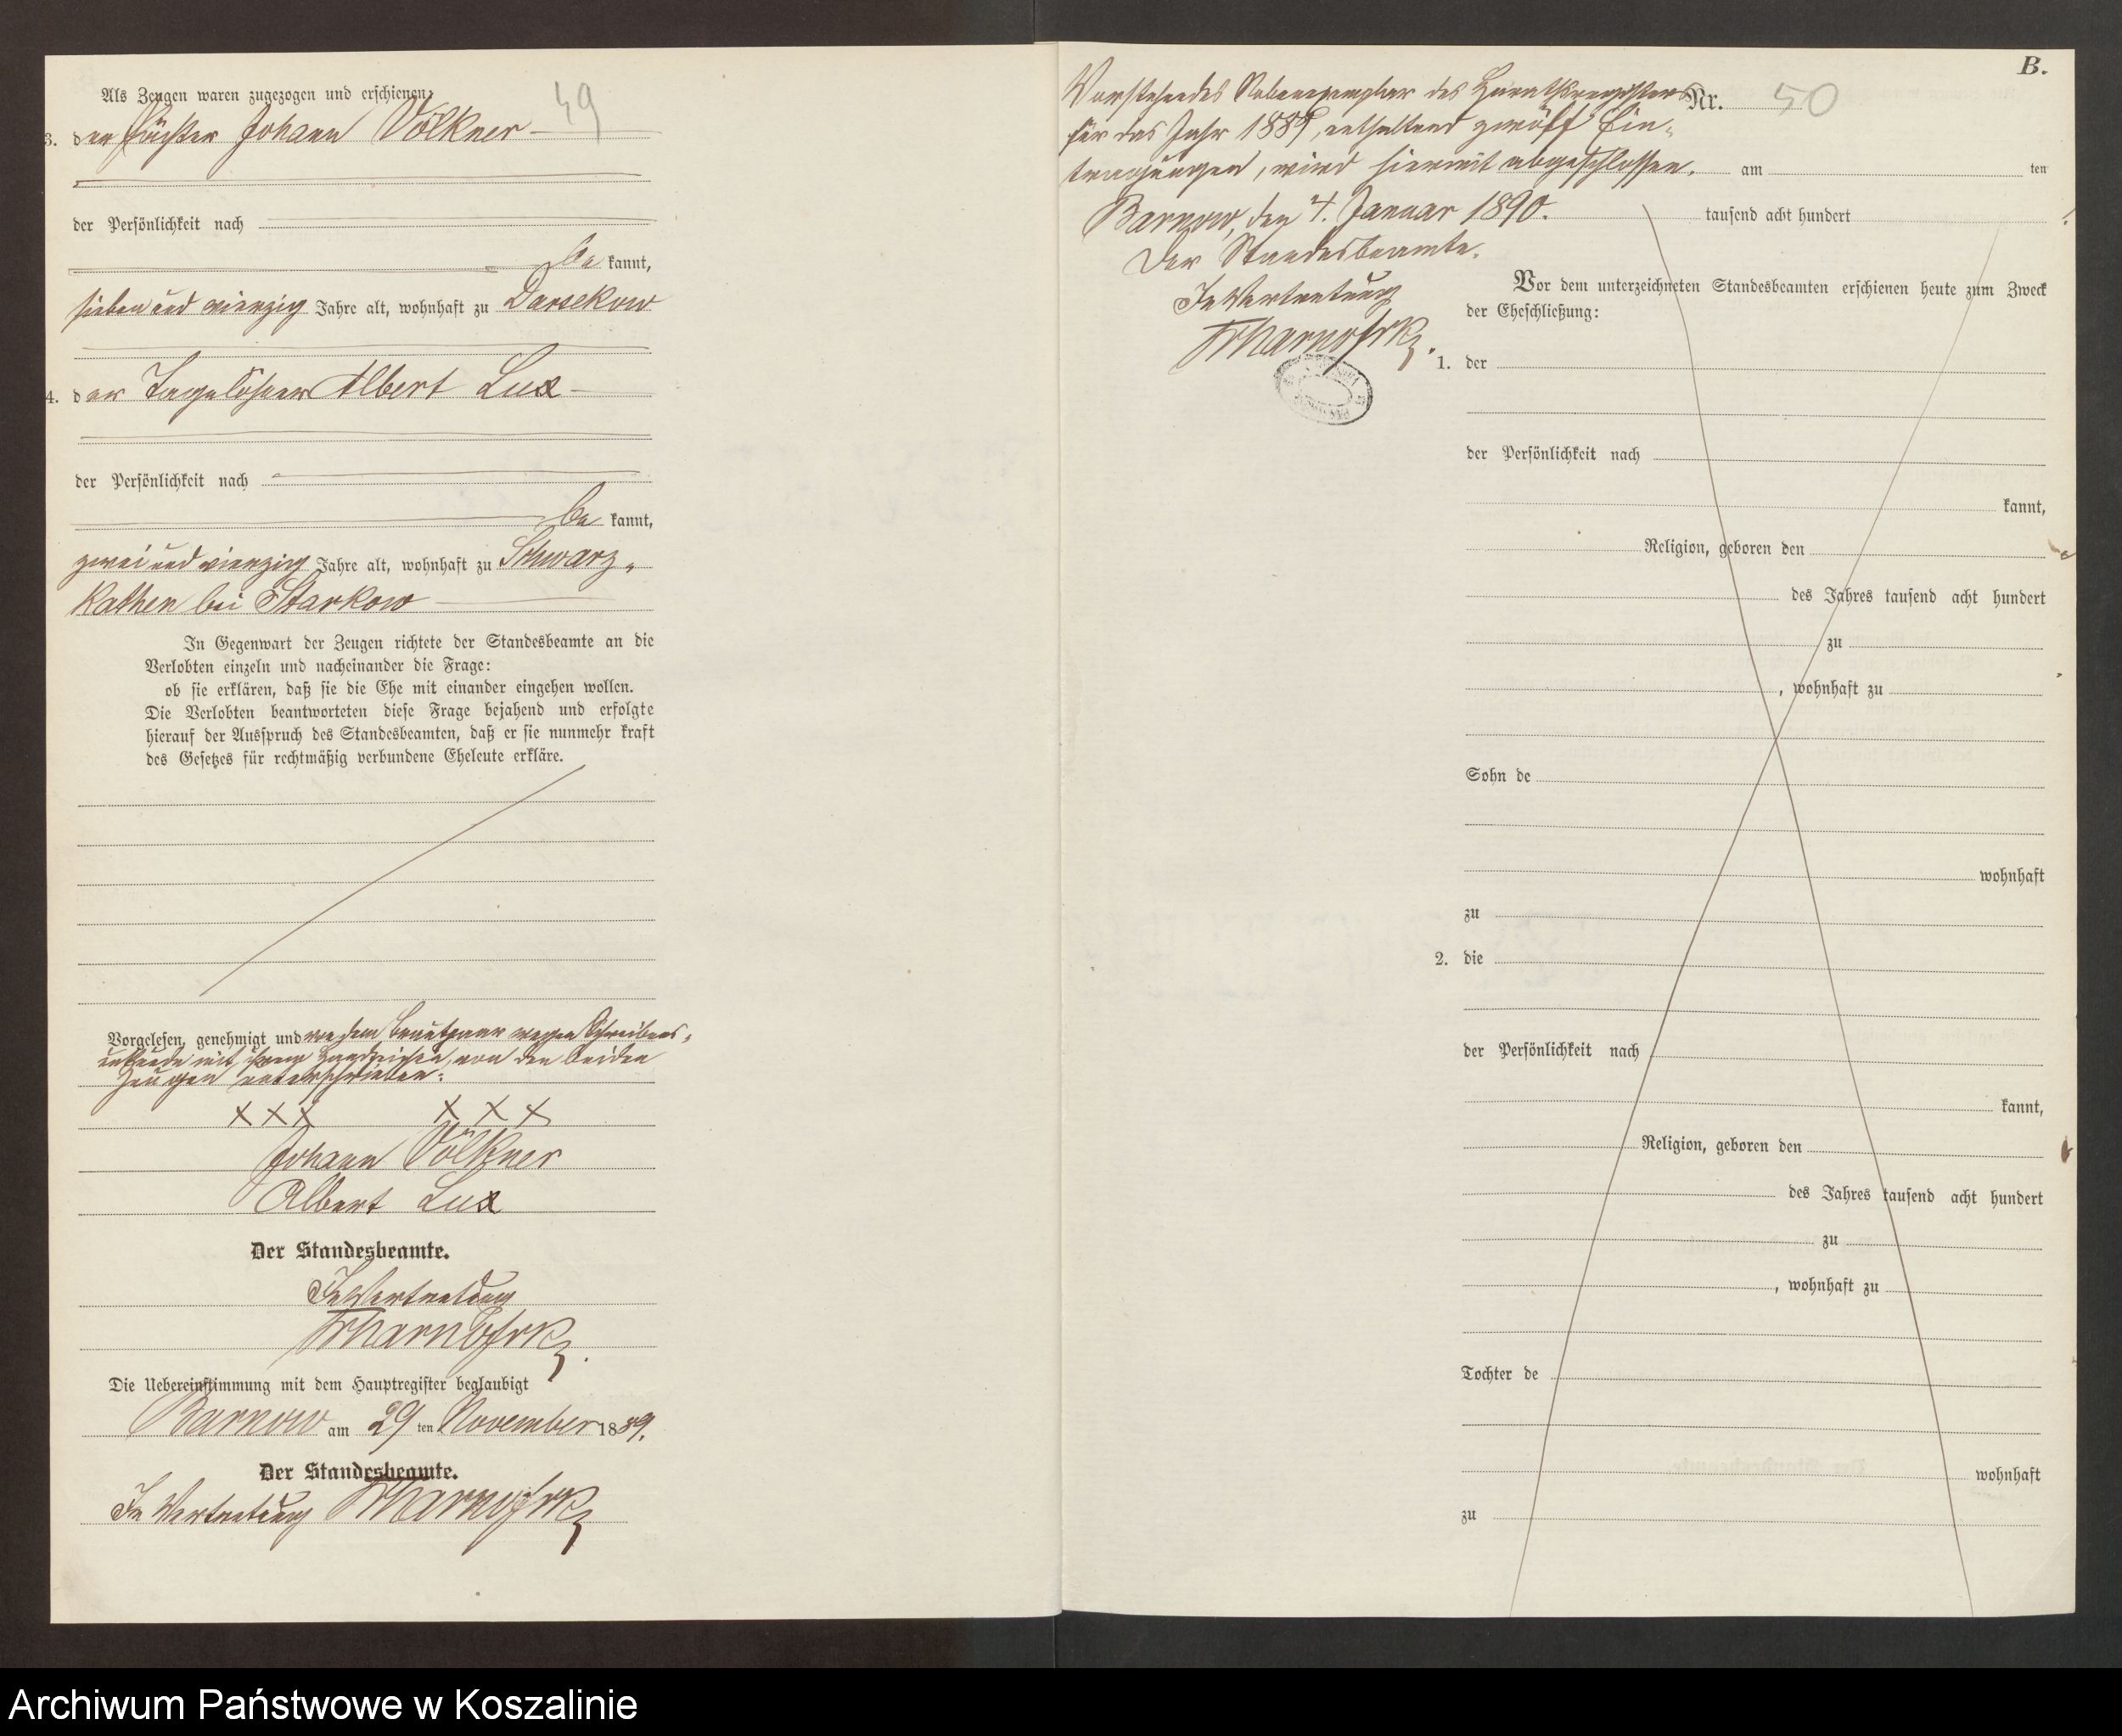 Als Zeugen waren zugezogen und erschienen:
49
3. der Johann Völkner
der Persönlichkeit nach
be kannt,
sieben und vierzig Jahre alt, wohnhaft zu Darsekow
4. der Tagelöhner Albert Lux
der Persönlichkeit nach
be kannt,
zwei und vierzig Jahre alt, wohnhaft zu Schwarz-
kathen bei Starkow
In Gegenwart der Zeugen richtete der Standesbeamte an die
Verlobten einzeln und nacheinander die Frage:
ob sie erklären, daß sie die Ehe mit einander eingehen wollen.
Die Verlobten beantworteten diese Frage bejahend und erfolgte
hierauf der Ausspruch des Standesbeamten, daß er sie nunmehr kraft
des Gesetzes für rechtmäßig verbundene Eheleute erkläre.
Vorgelesen, genehmigt und von dem Brautpaar wegen Schreibens-
unkunde mit ihrem Handzeichen, von den beiden
Zeugen unterschrieben:
XXX XXX
Johann Völkner
Albert Lux
Der Standesbeamte.
In Vertretung
Die Uebereinstimmung mit dem Hauptregister beglaubigt
Barnow am 29 ten November 1889.
Der Standesbeamte.
In Vertretung
B.
Vorstehendes Nebenexemplar des Heirathsregisters
Nr. 50
für das Jahr 1889, enthaltend zwölf Ein-
tragungen, wird hiermit abgeschlossen.
am ten
Barnow, den 4. Januar 1890.
tausend acht hundert
Der Standesbeamte.
In Vertretung
Vor dem unterzeichneten Standesbeamten erschienen heute zum Zweck
der Eheschließung:
1. der
der Persönlichkeit nach
kannt,
Religion, geboren den
des Jahres tausend acht hundert
zu
, wohnhaft zu
Sohn de
wohnhaft
zu
2. die
der Persönlichkeit nach
kannt,
Religion, geboren den
des Jahres tausend acht hundert
zu
, wohnhaft zu
Tochter de
wohnhaft
zu
Archiwum Państwowe w Koszalinie